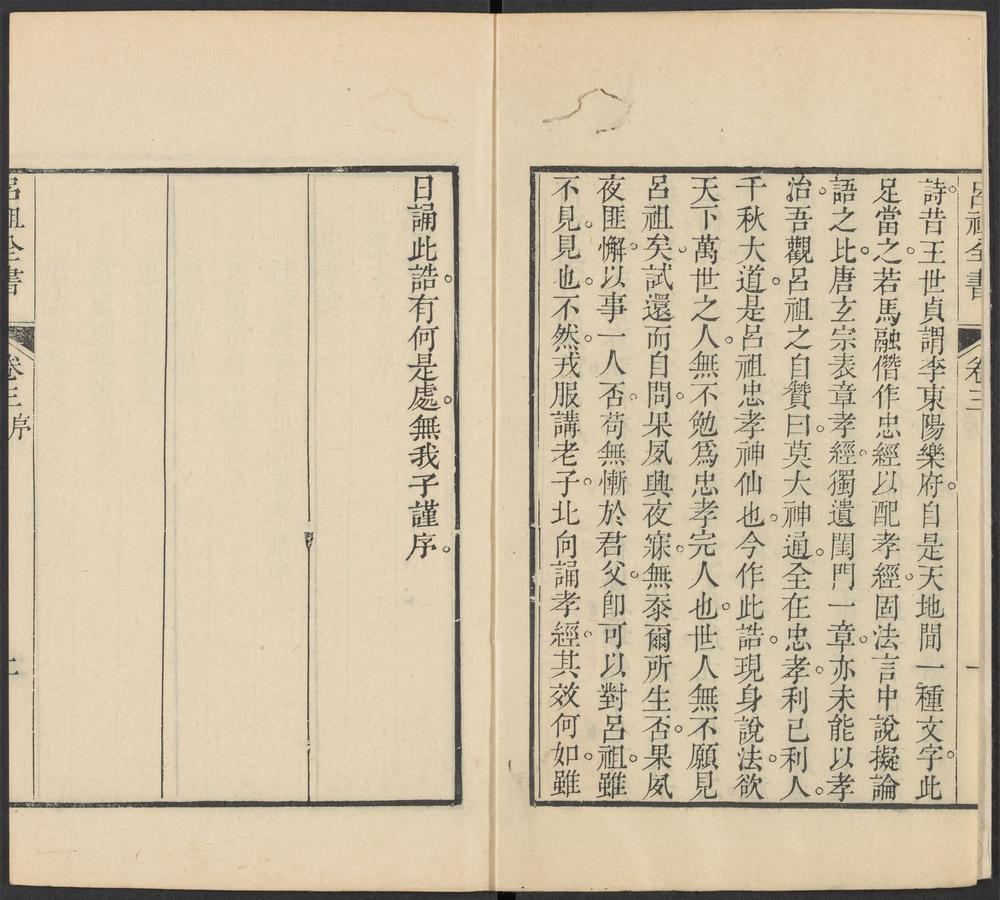 呂祖全書 卷三 一
詩。昔王世貞謂李東陽樂府。自是天地間一種文字。此
足當之。若馬融僭作忠經以配孝經。固法言中說擬論
語之比。唐玄宗表章孝經。獨遺閨門一章。亦未能以孝
治。吾觀呂祖之自贊曰。莫大神通。全在忠孝。利己利人。
千秋大道。是呂祖忠孝神仙也。今作此誥。現身說法。欲
天下萬世之人。無不勉爲忠孝完人也。世人無不願見
呂祖矣。試還而自問。果夙興夜寐。無忝爾所生否。果夙
夜匪懈。以事一人否。苟無慚於君父。卽可以對呂祖。雖
不見。見也。不然。戎服講老子。北向誦孝經。其效何如。雖
日誦此誥。有何是處。無我子謹序。
呂祖全書 卷三序